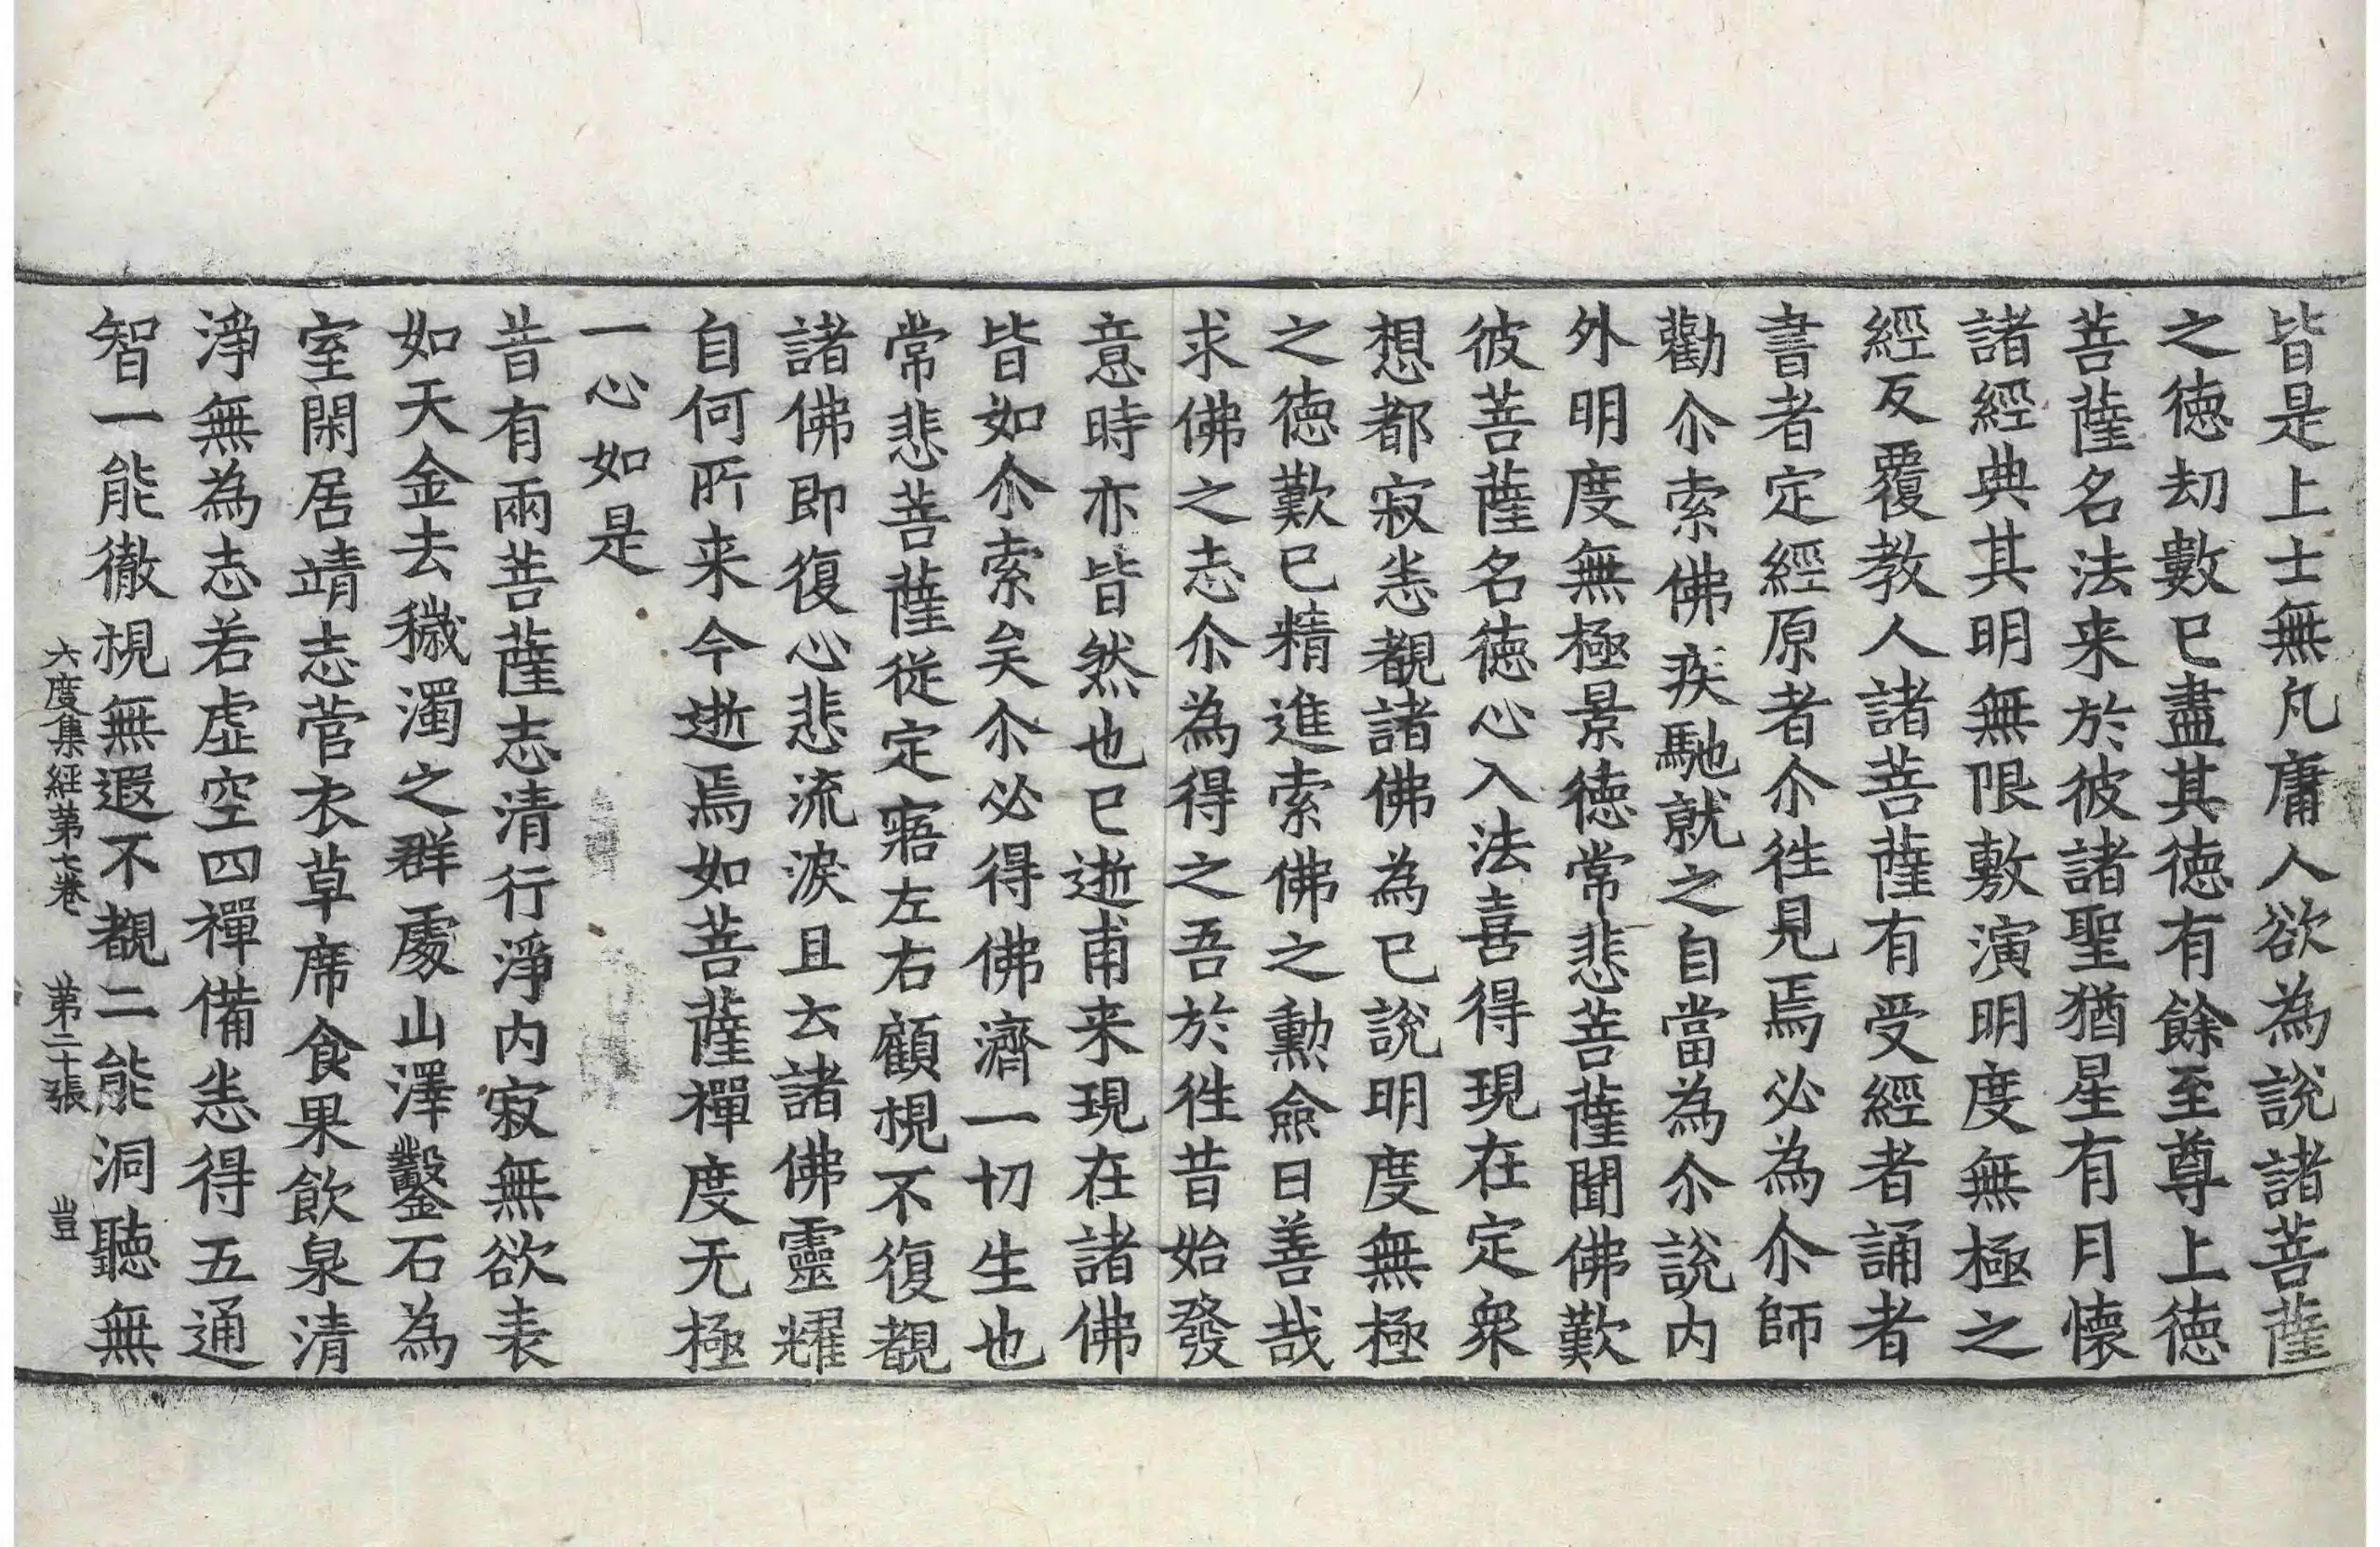 皆是上士無凡庸人欲為說諸菩薩
之徳劫數已盡其徳有餘至尊上徳
菩薩名法来於彼諸聖猶星有月懷
諸經典其明無限敷演明度無極之
經反覆教人諸菩薩有受經者誦者
書者定經原者尒徃見焉必為尒師
勸尒索佛疾馳就之自當為尒說内
外明度無極景徳常悲菩薩聞佛歎
彼菩薩名徳心入法喜得現在定衆
想都寂恙覩諸佛為已說明度無極
之徳歎已精進索佛之勳僉曰善哉
求佛之志尒為得之吾於徃昔始發
意時亦皆然也已逝甫来現在諸佛
皆如尒索矣尒必得佛濟一切生也
常悲菩薩従定寤左右顧視不復覩
諸佛即復心悲流淚且云諸佛靈耀
自何所来今逝焉如菩薩禪度无極
一心如是
昔有兩菩薩志清行淨内寂無欲表
如天金去穢濁之群處山澤鑿石為
室閑居靖志菅衣草席食果飲泉清
淨無為志若虛空四禪備恙得五通
智一能徹視無遐不覩二能洞聽無
六度集經第七卷 第二十張 豈